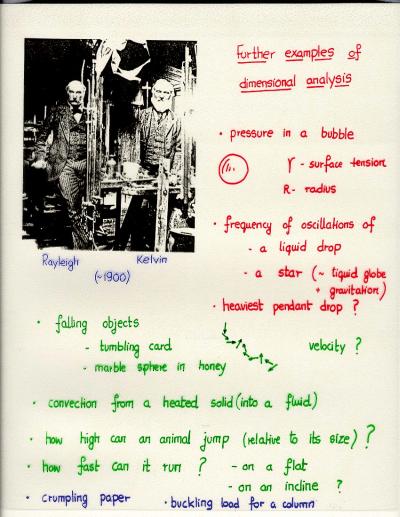 Further examples of
dimensional analysis
• pressure in a bubble
γ - surface tension
R - radius
• frequency of oscillations of
- a liquid drop
- a star (~ liquid globe
+ gravitation)
• heaviest pendant drop ?
Rayleigh Kelvin
(~1900)
• falling objects
- tumbling card velocity ?
- marble sphere in honey
• convection from a heated solid (into a fluid)
• how high can an animal jump (relative to its size) ?
• how fast can it run ? - on a flat
- on an incline ?
• crumpling paper • buckling load for a column